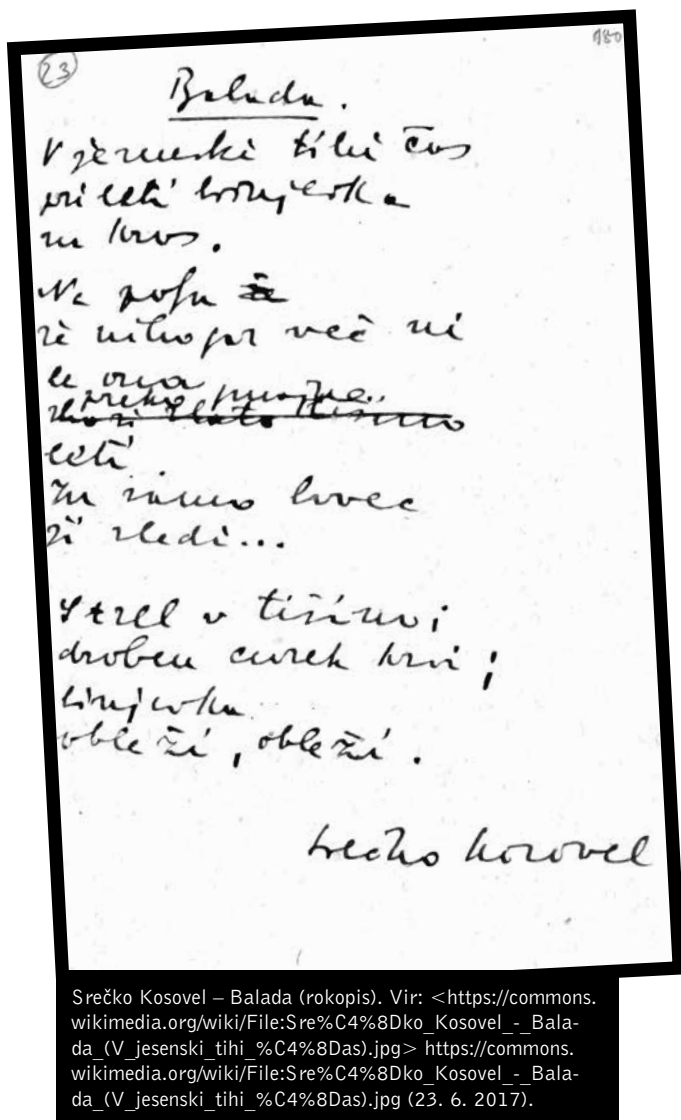 23
180
Balada.
V jesenski tihi čas
prileti brinjevka
na Kras.
Na polju
že nikogar več ni
le ona
preko gmajne..
skozi zlato tišino
leti
In samo lovec
ji sledi...
Strel v tišino;
droben curek krvi;
brinjevka
obleži, obleži.
Srečko Kosovel
Srečko Kosovel – Balada (rokopis). Vir: <https://commons.
wikimedia.org/wiki/File:Sre%C4%8Dko_Kosovel_-_Bala-
da_(V_jesenski_tihi_%C4%8Das).jpg> https://commons.
wikimedia.org/wiki/File:Sre%C4%8Dko_Kosovel_-_Bala-
da_(V_jesenski_tihi_%C4%8Das).jpg (23. 6. 2017).